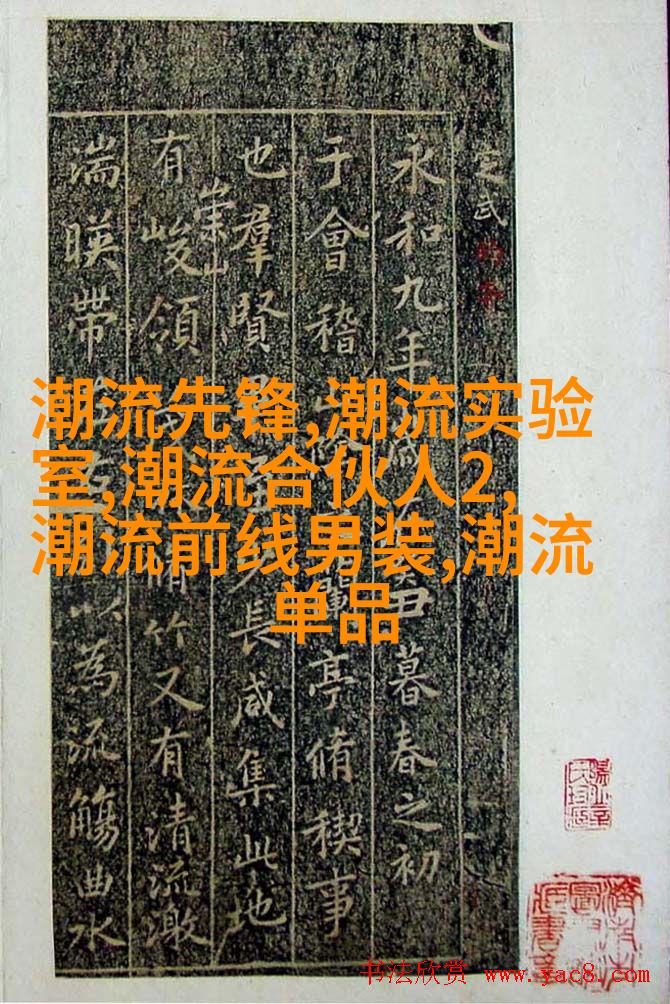 潮流先锋,潮流实验
室,潮流合伙人2,
潮流前线男装,潮流
单品
定武
永和九年丑暮春之初
于會稽山蘭亭脩稧事
也羣賢至少長咸集此地
有崇山峻領脩竹又有清流激
湍暎帶以為流觴曲水
书法欣赏 www.yac8.com